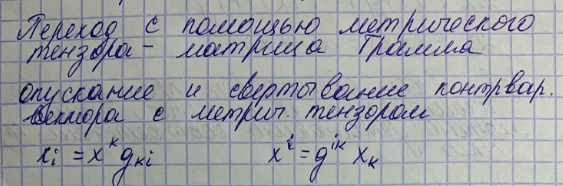 Переход с помощью метрического
тензора - матрица Грамма
опускание и свертывание контрвар.
вектора с метрич. тензором
xᵢ = xᵏ gₖᵢ xⁱ = gⁱᵏ xₖ